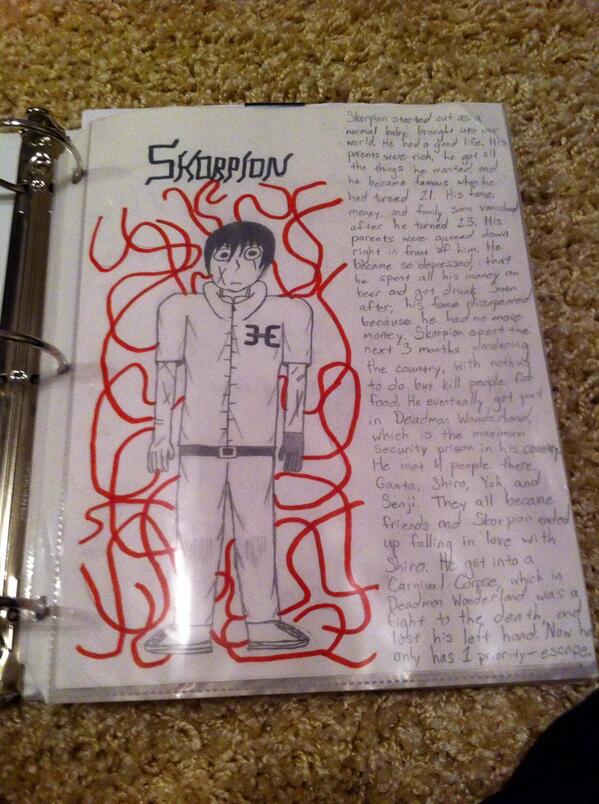 SKORPION
Skorpion started out as a
normal baby, brought into our
world. He had a good life. His
parents were rich, he got all
the things he wanted, and
he became famous when he
had turned 21. His fame,
money, and family soon vanished
after he turned 23. His
parents were gunned down
right in front of him. He
became so depressed, that
he spent all his money on
beer and got drunk. Soon
after, his fame dissapeared
because he had no more
money. Skorpion spent the
next 3 months wandering
the country, with nothing
to do but kill people for
food. He eventually got put
in Deadman Wonderland,
which is the maximum
security prison in his country.
He met 4 people there,
Ganta, Shiro, Yoh, and
Senji. They all became
friends and Skorpion ended
up falling in love with
Shiro. He got into a
Carnival Corpse, which in
Deadman Wonderland was a
fight to the death, and
lost his left hand. Now he
only has 1 priority-escape.